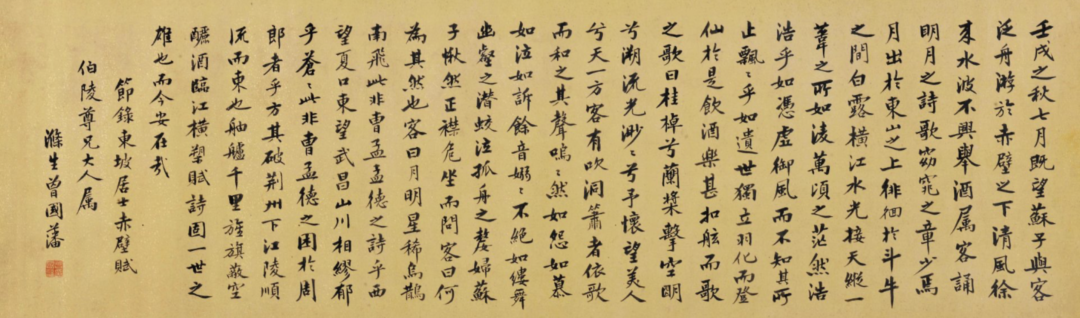 壬戌之秋七月既望蘇子與客
泛舟游於赤壁之下清風徐
來水波不興舉酒属客誦
明月之詩歌窈窕之章少焉
月出於東山之上徘徊於斗牛
之間白露橫江水光接天縱一
葦之所如凌萬頃之茫然浩
浩乎如憑虛御風而不知其所
止飄〻乎如遺世獨立羽化而登
仙於是飲酒樂甚扣舷而歌
之歌曰桂棹兮蘭槳擊空明
兮溯流光渺〻兮予懷望美人
兮天一方客有吹洞簫者依歌
而和之其聲嗚〻然如怨如慕
如泣如訴餘音嫋〻不絕如縷舞
幽壑之潛蛟泣孤舟之嫠婦蘇
子愀然正襟危坐而問客曰何
為其然也客曰月明星稀烏鵲
南飛此非曹孟孟德之詩乎西
望夏口東望武昌山川相繆郁
乎蒼〻此非曹孟德之困於周
郎者乎方其破荊州下江陵順
流而東也舳艫千里旌旗蔽空
釃酒臨江橫槊賦詩固一世之
雄也而今安在哉
節錄東坡居士赤壁賦
伯陵尊兄大人属
滌生曾國藩